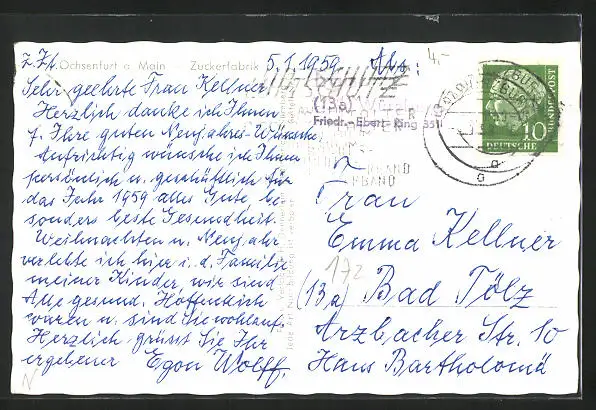 z. Zt. Ochsenfurt a Main - Zuckerfabrik 5.1.1959 Abs.: 4,-
Sehr geehrte Frau Kellner
Herzlich danke ich Ihnen
f. Ihre guten Neujahrs-Wünsche
Aufrichtig wünsche ich Ihnen
persönlich u. geschäftlich für
das Jahr 1959 alles Gute, be
sonders beste Gesundheit.
Weihnachten u. Neujahr
verlebte ich hier i. d. Familie
meiner Kinder, wir sind
Alle gesund. Hoffentlich
waren u. sind Sie wohlauf.
Herzlich grüsst Sie Ihr
ergebener Egon Wolff.
(13a)
Friedr.-Ebert-Ring 35
10
DEUTSCHE
BUNDESPOST
Frau
Emma Kellner
172
(13a) Bad Tölz
Arzbacher Str. 10
Haus Bartholomä